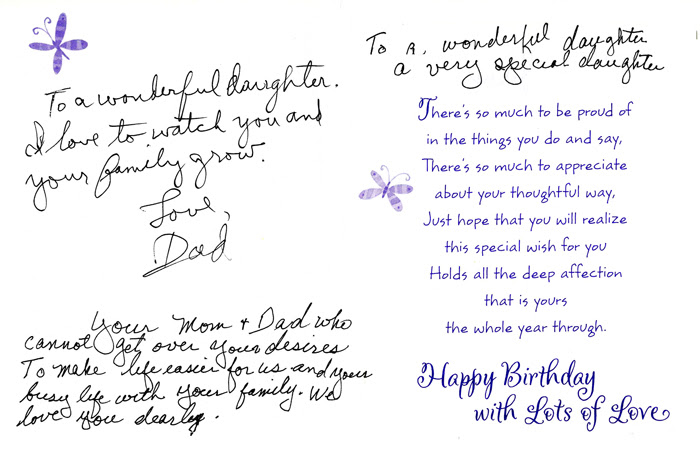 To a wonderful daughter.
I love to watch you and
your family grow.
Love,
Dad
Your Mom + Dad who
cannot get over your desires
To make life easier for us and your
busy life with your family. We
love you dearly.
To a, wonderful daughter
a very special daughter
There's so much to be proud of
in the things you do and say,
There's so much to appreciate
about your thoughtful way,
Just hope that you will realize
this special wish for you
Holds all the deep affection
that is yours
the whole year through.
Happy Birthday
with Lots of Love